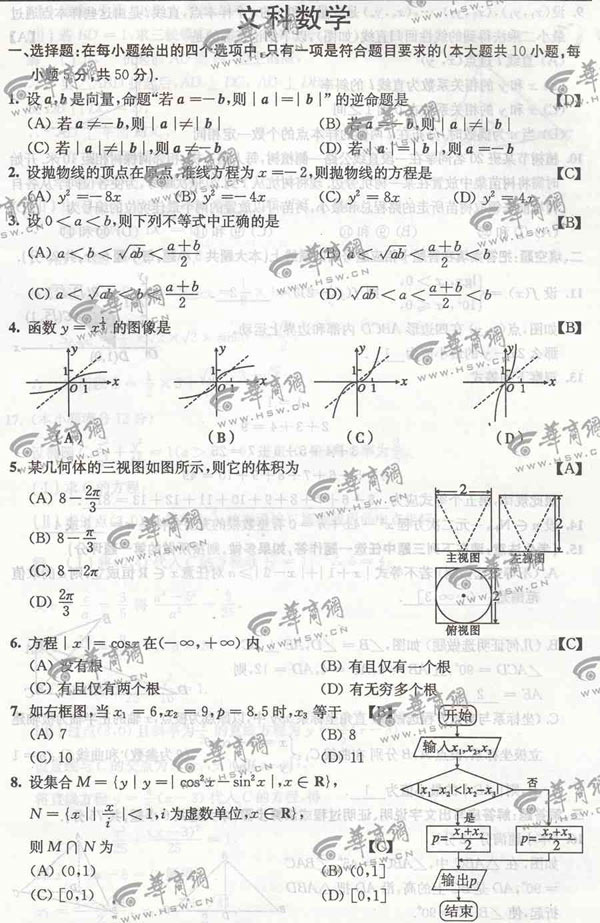 文科数学
一、选择题:在每小题给出的四个选项中,只有一项是符合题目要求的(本大题共 10 小题,每
小题 5 分,共 50 分).
1. 设 a,b 是向量,命题“若 a=-b,则 | a |=| b |”的逆命题是 【D】
(A) 若 a≠-b,则 | a |≠| b | (B) 若 a=-b,则 | a |≠| b |
(C) 若 | a |≠| b |,则 a≠-b (D) 若 | a |=| b |,则 a=-b
2. 设抛物线的顶点在原点,准线方程为 x=-2,则抛物线的方程是 【C】
(A) y²=-8x (B) y²=-4x (C) y²=8x (D) y²=4x
3. 设 0<a<b,则下列不等式中正确的是 【B】
(A) a<b<√ab<(a+b)/2 (B) a<√ab<(a+b)/2<b
(C) a<√ab<b<(a+b)/2 (D) √ab<a<(a+b)/2<b
4. 函数 y=x^(1/3) 的图像是 【B】
y y y y
1 1 1 1
O 1 x O 1 x O 1 x O 1 x
(A) (B) (C) (D)
5. 某几何体的三视图如图所示,则它的体积为 【A】
(A) 8-2π/3
(B) 8-π/3
(C) 8-2π
(D) 2π/3
2 2
主视图 左视图
2
俯视图
6. 方程 | x |=cosx 在(-∞,+∞)内 【C】
(A) 没有根 (B) 有且仅有一个根
(C) 有且仅有两个根 (D) 有无穷多个根
7. 如右框图,当 x₁=6,x₂=9,p=8.5 时,x₃ 等于
(A) 7 (B) 8
(C) 10 (D) 11
8. 设集合 M={y | y=| cos²x-sin²x |,x∈R},
N={x || x/i |<1,i 为虚数单位,x∈R},
则 M∩N 为 【C】
(A) (0,1) (B) (0,1]
(C) [0,1) (D) [0,1]
开始
输入x₁,x₂,x₃
|x₁-x₂|<|x₂-x₃| 否
是
p=(x₁+x₂)/2 p=(x₂+x₃)/2
输出p
结束
華商網
WWW.HSW.CN